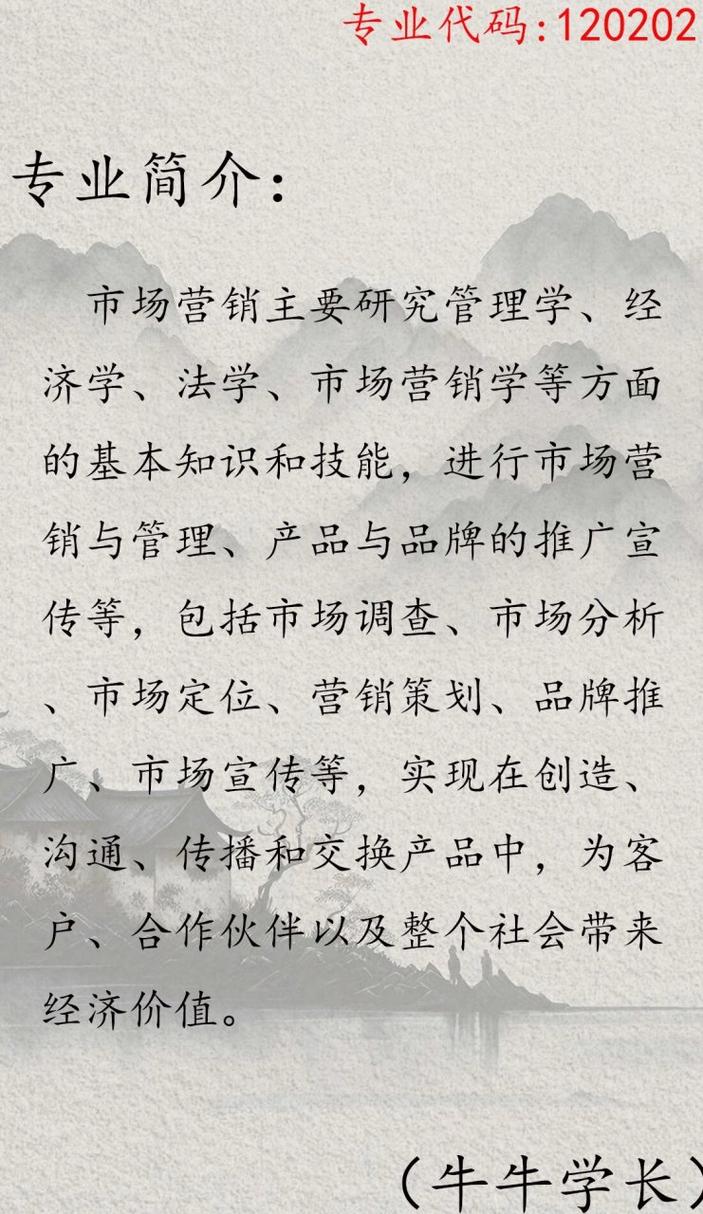 专业代码:120202
专业简介：
市场营销主要研究管理学、经
济学、法学、市场营销学等方面
的基本知识和技能，进行市场营
销与管理、产品与品牌的推广宣
传等，包括市场调查、市场分析
、市场定位、营销策划、品牌推
广、市场宣传等，实现在创造、
沟通、传播和交换产品中，为客
户、合作伙伴以及整个社会带来
经济价值。
（牛牛学长）